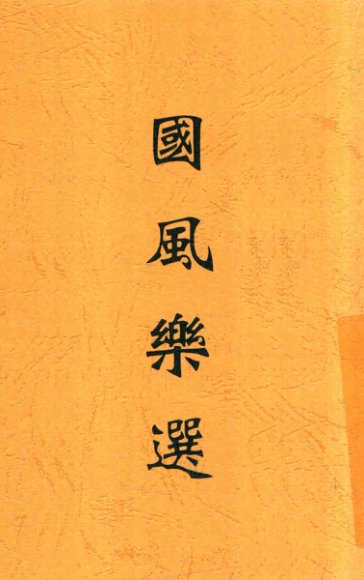 國風樂選